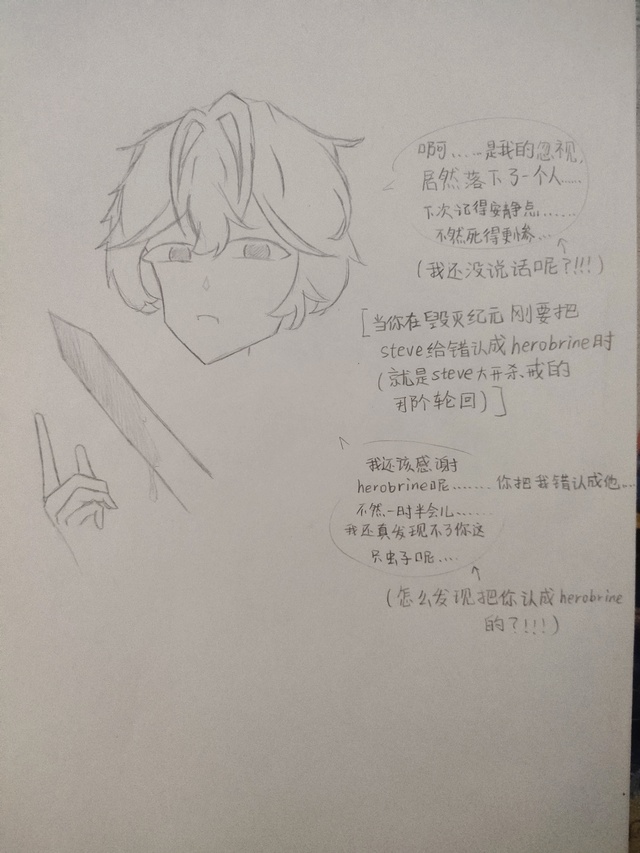 啊......是我的忽视,
居然落下了一个人......
下次记得安静点......
不然死得更惨...
(我还没说话呢?!!!)
[当你在毁灭纪元刚要把
steve给错认成herobrine时
(就是steve大开杀戒的
那个轮回)]
我还该感谢
herobrine呢....... 你把我错认成他...
不然一时半会儿......
我还真发现不了你这
只虫子呢....
(怎么发现把你认成herobrine
的?!!!)